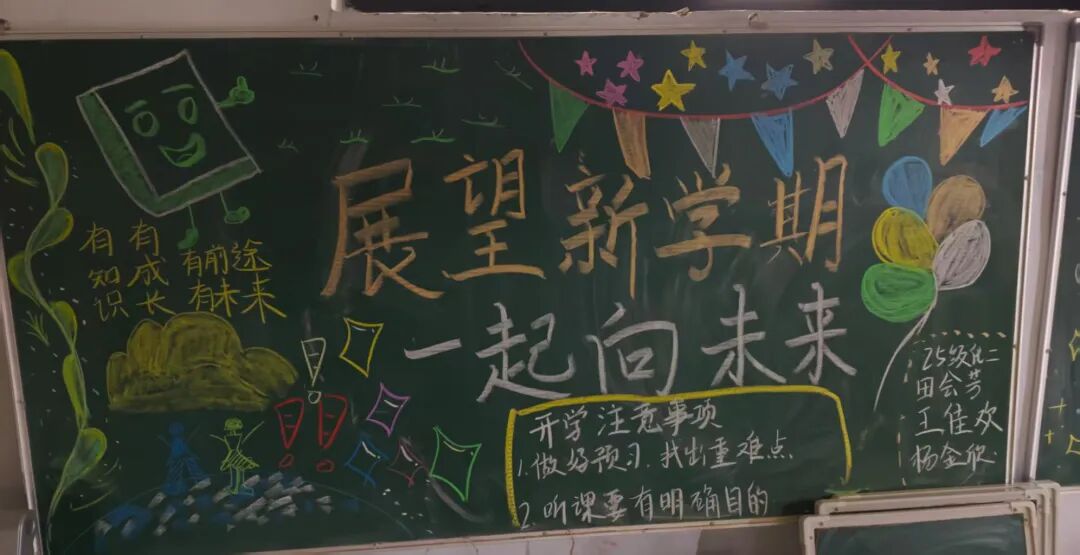 展望新学期
一起向未来
有知识
有成长
有前途
有未来
开学注意事项
1.做好预习.找出重难点.
2.听课要有明确目的
田会芳
王佳欢
杨金欣